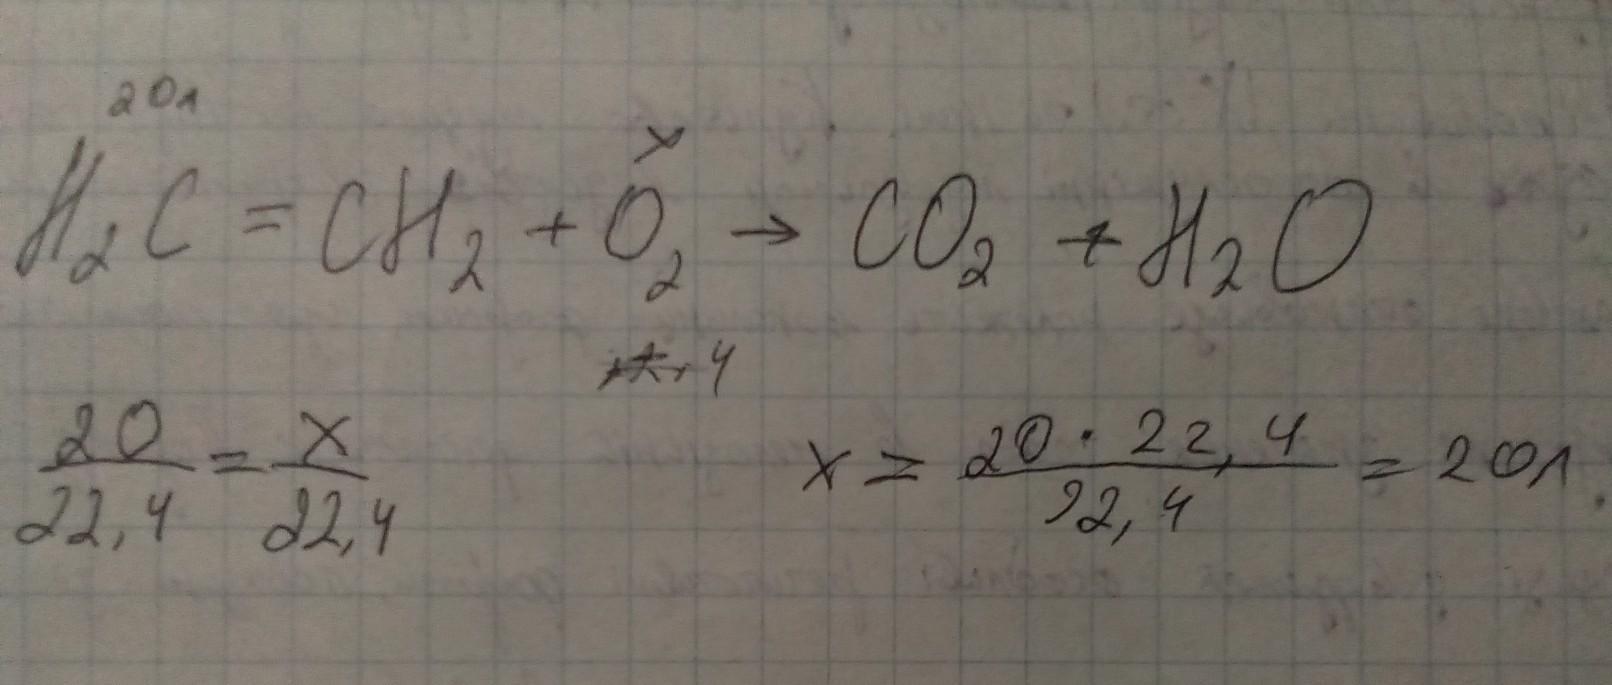 20л
x
H₂C = CH₂ + O₂ → CO₂ + H₂O
4
20/22,4 = x/22,4
x = 20 · 22,4/22,4 = 20л.